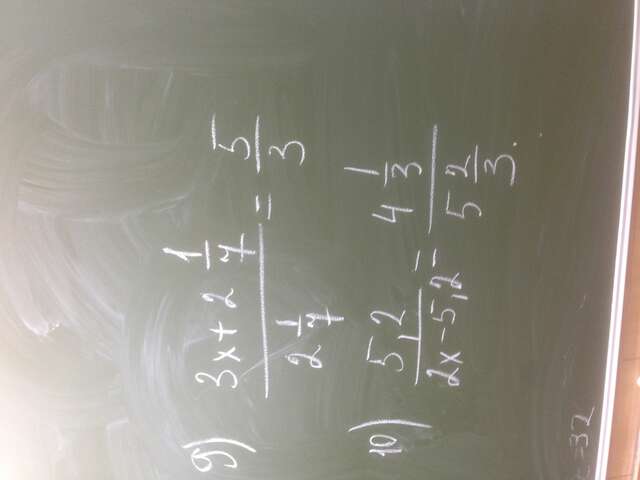 9) (3x + 2 1/7) / (2 1/7) = 5/3
10) 5,2 / (2x - 5,2) = (4 1/3) / (5 2/3).
=32